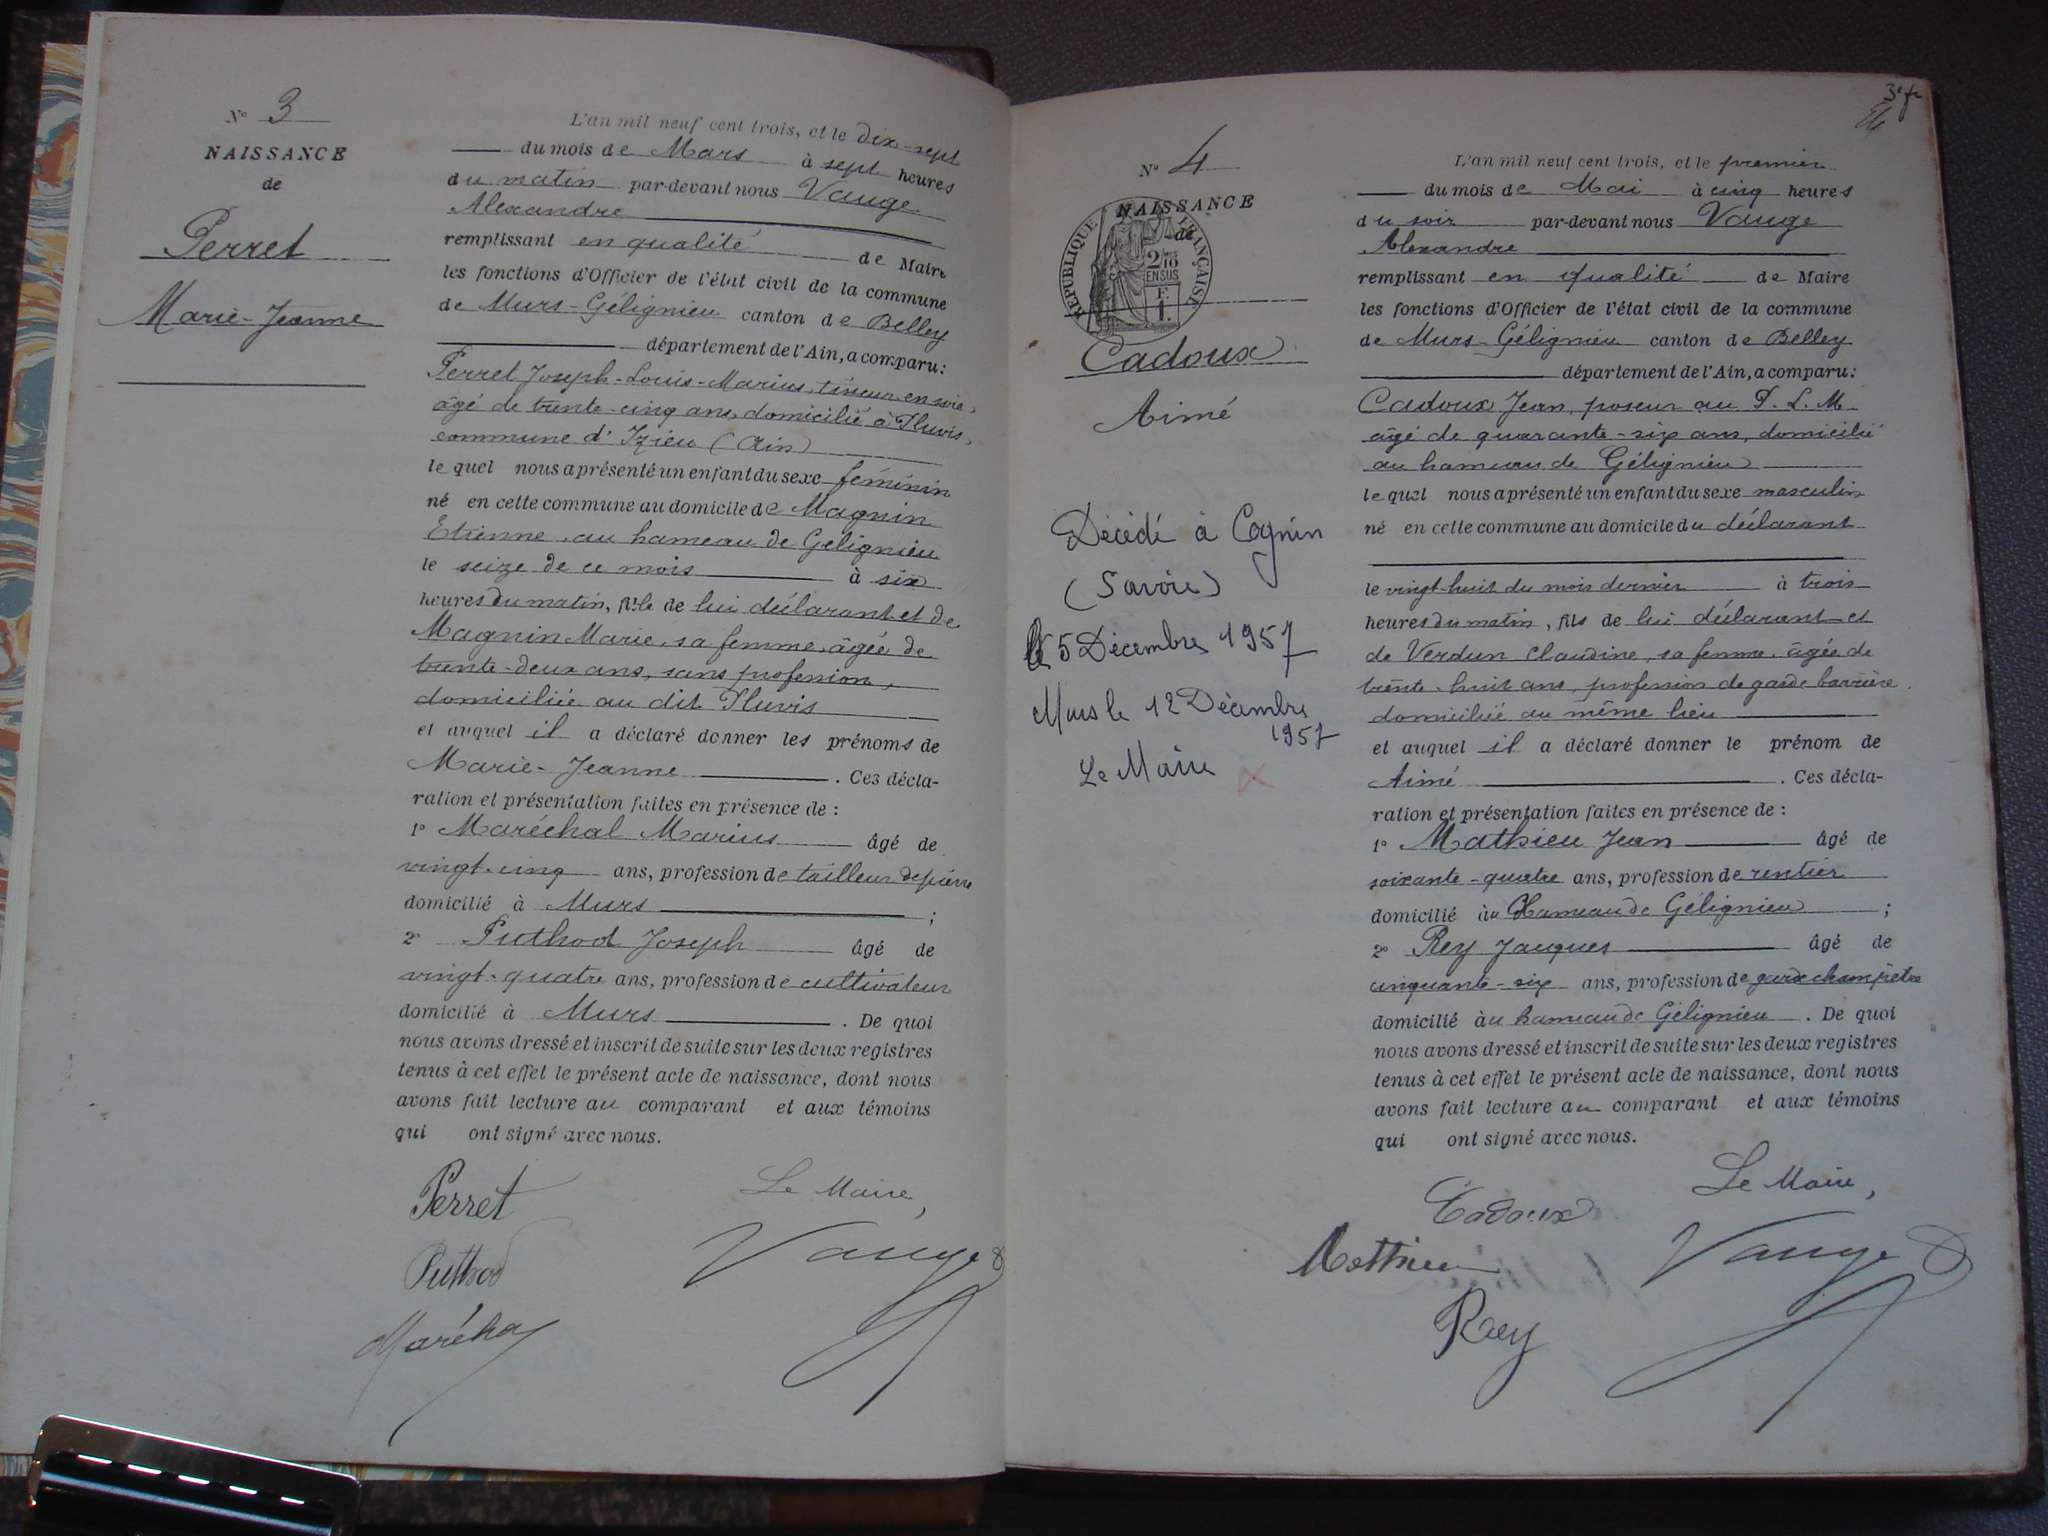 N° 3
NAISSANCE
de
Perret
Marie-Jeanne
L'an mil neuf cent trois, et le dix-sept
du mois de Mars à sept heures
du matin par-devant nous Vauge
Alexandre
remplissant en qualité de Maire
les fonctions d'Officier de l'état civil de la commune
de Murs-Gélignieu canton de Belley
département de l'Ain, a comparu:
Perret Joseph-Louis-Marius, tisseur en soie,
âgé de trente-cinq ans, domicilié à Pluvis,
commune d'Izieu (Ain)
le quel nous a présenté un enfant du sexe féminin
né en cette commune au domicile de Magnin
Etienne, au hameau de Gélignieu
le seize de ce mois à six
heures du matin, fille de lui déclarant et de
Magnin Marie, sa femme, âgée de
trente-deux ans, sans profession,
domiciliée au dit Pluvis
et auquel il a déclaré donner les prénoms de
Marie-Jeanne . Ces décla-
ration et présentation faites en présence de :
1° Maréchal Marius âgé de
vingt-cinq ans, profession de tailleur de pierre
domicilié à Murs ;
2° Puthod Joseph âgé de
vingt-quatre ans, profession de cultivateur
domicilié à Murs . De quoi
nous avons dressé et inscrit de suite sur les deux registres
tenus à cet effet le présent acte de naissance, dont nous
avons fait lecture au comparant et aux témoins
qui ont signé avec nous.
Perret
Le Maire,
Puthod
Vauge
Maréchal
N° 4
NAISSANCE
de
RÉPUBLIQUE FRANÇAISE
2/10
EN SUS
F.
1.
Cadoux
Aimé
Décédé à Cognin
(Savoie)
le 5 Décembre 1957
Murs le 12 Décembre
1957
Le Maire
L'an mil neuf cent trois, et le premier
du mois de Mai à cinq heures
du soir par-devant nous Vauge
Alexandre
remplissant en qualité de Maire
les fonctions d'Officier de l'état civil de la commune
de Murs-Gélignieu canton de Belley
département de l'Ain, a comparu:
Cadoux Jean, poseur au P. L. M
âgé de quarante-six ans, domicilié
au hameau de Gélignieu
le quel nous a présenté un enfant du sexe masculin
né en cette commune au domicile du déclarant
le vingt-huit du mois dernier à trois
heures du matin, fils de lui déclarant et
de Verdun Claudine, sa femme, âgée de
trente-huit ans, profession de garde barrière
domiciliée au même lieu
et auquel il a déclaré donner le prénom de
Aimé . Ces décla-
ration et présentation faites en présence de :
1° Mathieu Jean âgé de
soixante-quatre ans, profession de rentier
domicilié au Hameau de Gélignieu ;
2° Rey Jacques âgé de
cinquante-six ans, profession de garde champêtre
domicilié au hameau de Gélignieu . De quoi
nous avons dressé et inscrit de suite sur les deux registres
tenus à cet effet le présent acte de naissance, dont nous
avons fait lecture au comparant et aux témoins
qui ont signé avec nous.
Le Maire,
Cadoux
Mathieu
Vauge
Rey